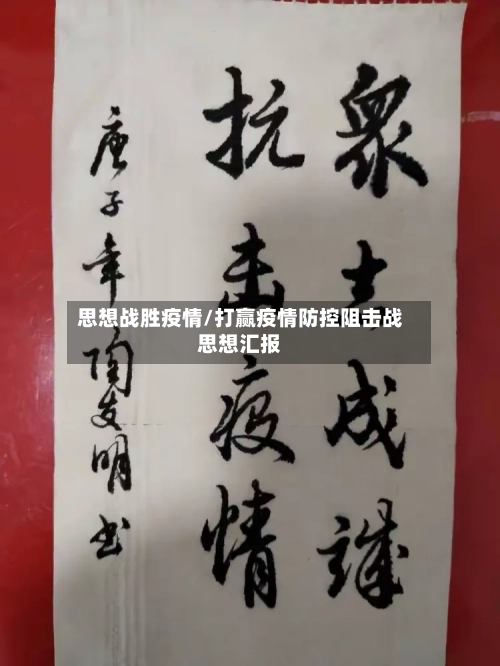 衆志成诚
抗击疫情
庚子年陶友明书
思想战胜疫情/打赢疫情防控阻击战
思想汇报